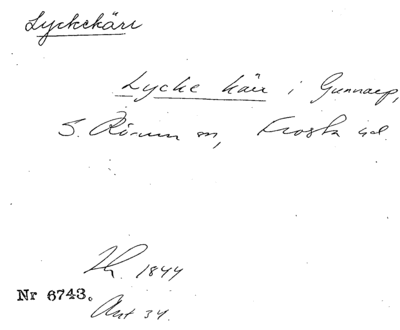 Lyckekärr
Lycke kärr i Gunnarp,
S. Rörum sn, Frosta hd.
1844
Nr 6743.
Ant 34.